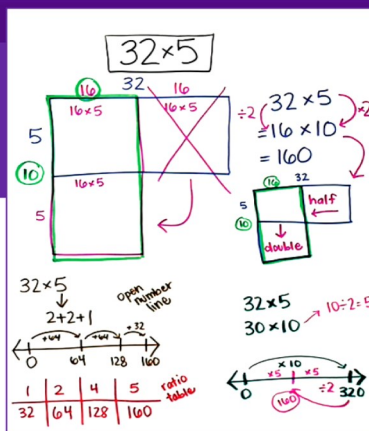 32×5
16 32 16
16×5 16×5
5
10
16×5
5
÷2 32×5 ×2
=16×10
=160
16 32
5 half
10
double
32×5
2+2+1
open number line
+64 +64 +32
0 64 128 160
1 2 4 5
32 64 128 160
ratio table
32×5
30×10 → 10÷2=5
×10
×5 ×5
0 160 ÷2 320